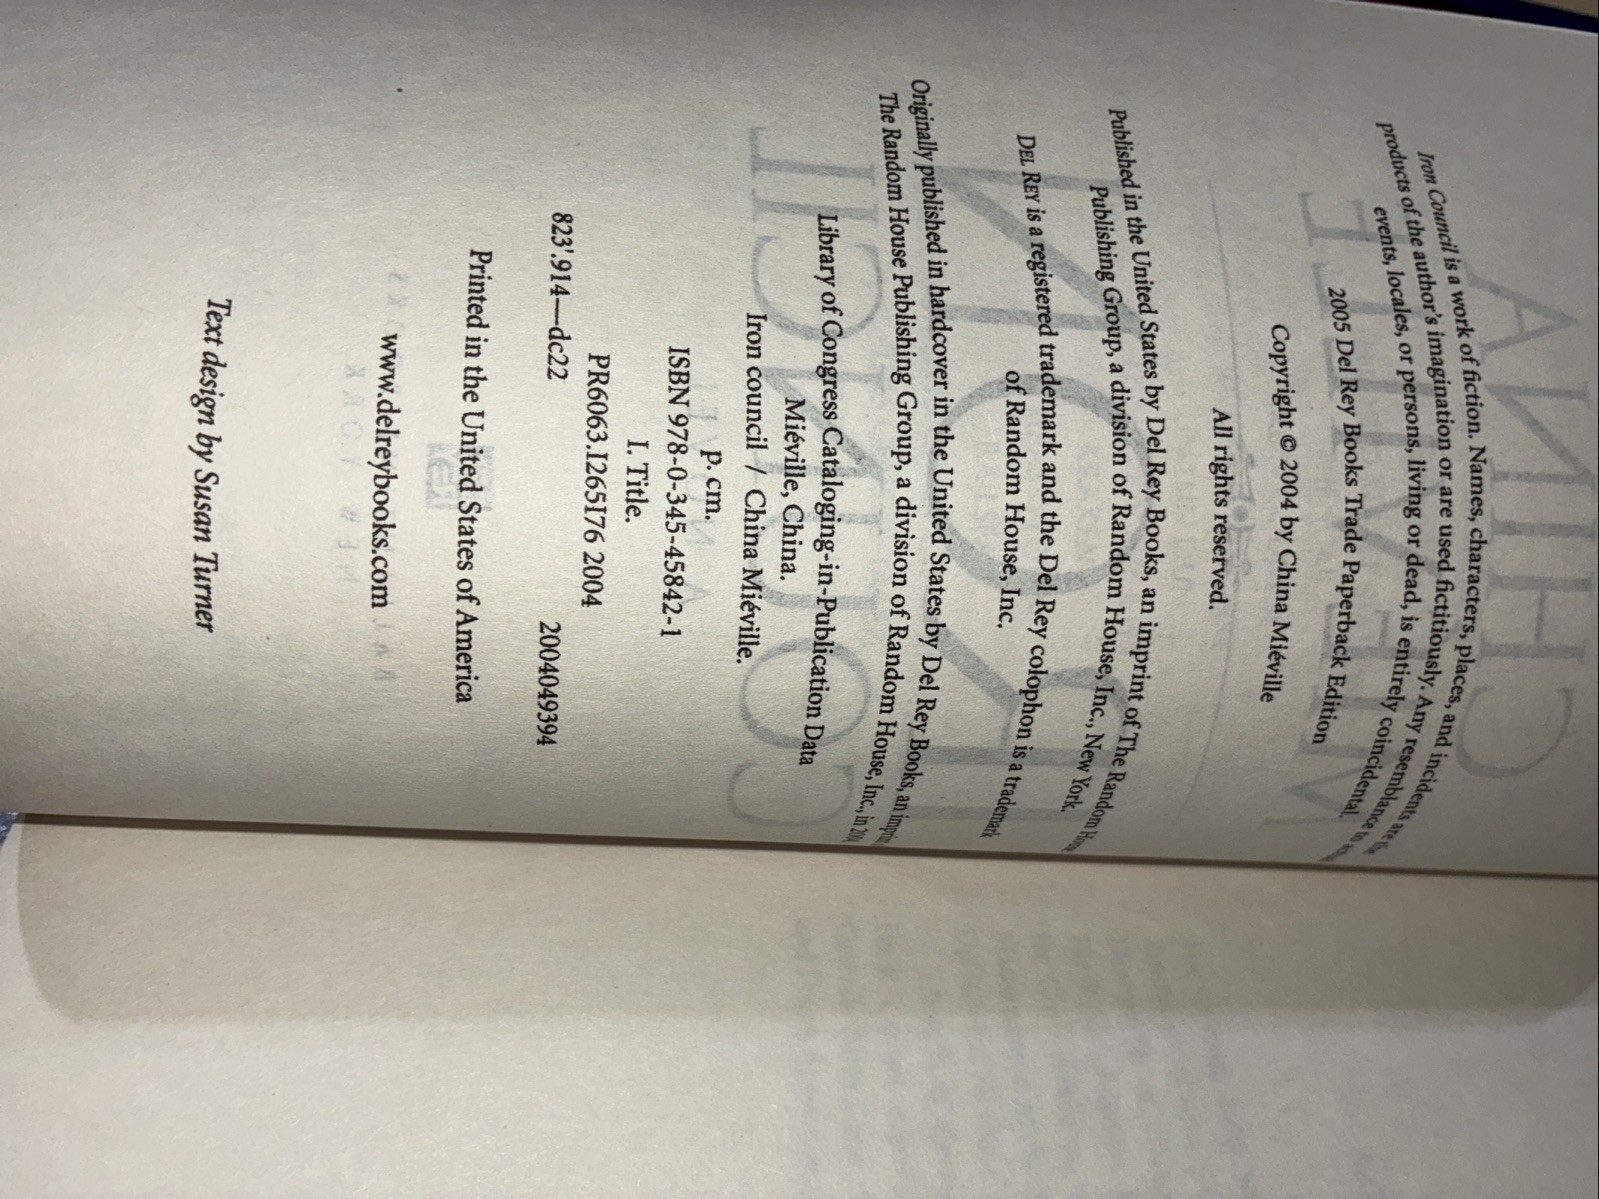 Iron Council is a work of fiction. Names, characters, places, and incidents are the
products of the author's imagination or are used fictitiously. Any resemblance to
events, locales, or persons, living or dead, is entirely coincidental.
2005 Del Rey Books Trade Paperback Edition
Copyright © 2004 by China Miéville
All rights reserved.
Published in the United States by Del Rey Books, an imprint of The Random
Publishing Group, a division of Random House, Inc., New York.
DEL REY is a registered trademark and the Del Rey colophon is a trademark
of Random House, Inc.
Originally published in hardcover in the United States by Del Rey Books, an
The Random House Publishing Group, a division of Random House, Inc., in
Library of Congress Cataloging-in-Publication Data
Miéville, China.
Iron council / China Miéville.
p. cm.
ISBN 978-0-345-45842-1
I. Title.
PR6063.I265I76 2004
823'.914—dc22 2004049394
Printed in the United States of America
www.delreybooks.com
Text design by Susan Turner